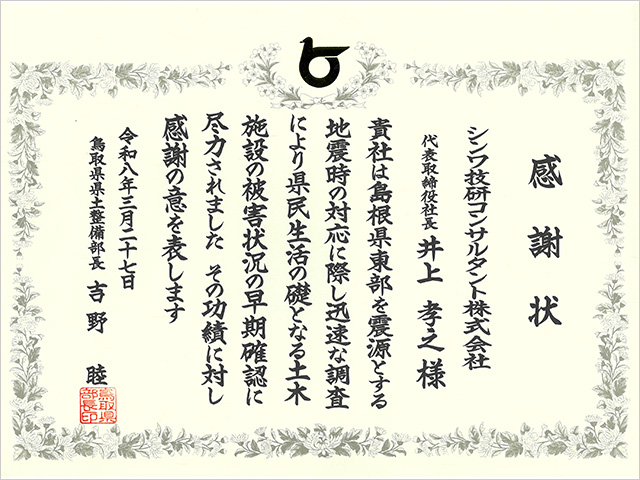 感謝状
シンワ技研コンサルタント株式会社
代表取締役社長 井上 孝之 様
貴社は島根県東部を震源とする
地震時の対応に際し迅速な調査
により県民生活の礎となる土木
施設の被害状況の早期確認に
尽力されました その功績に対し
感謝の意を表します
令和八年三月二十七日
鳥取県県土整備部長 吉野 睦
鳥取県
部長印